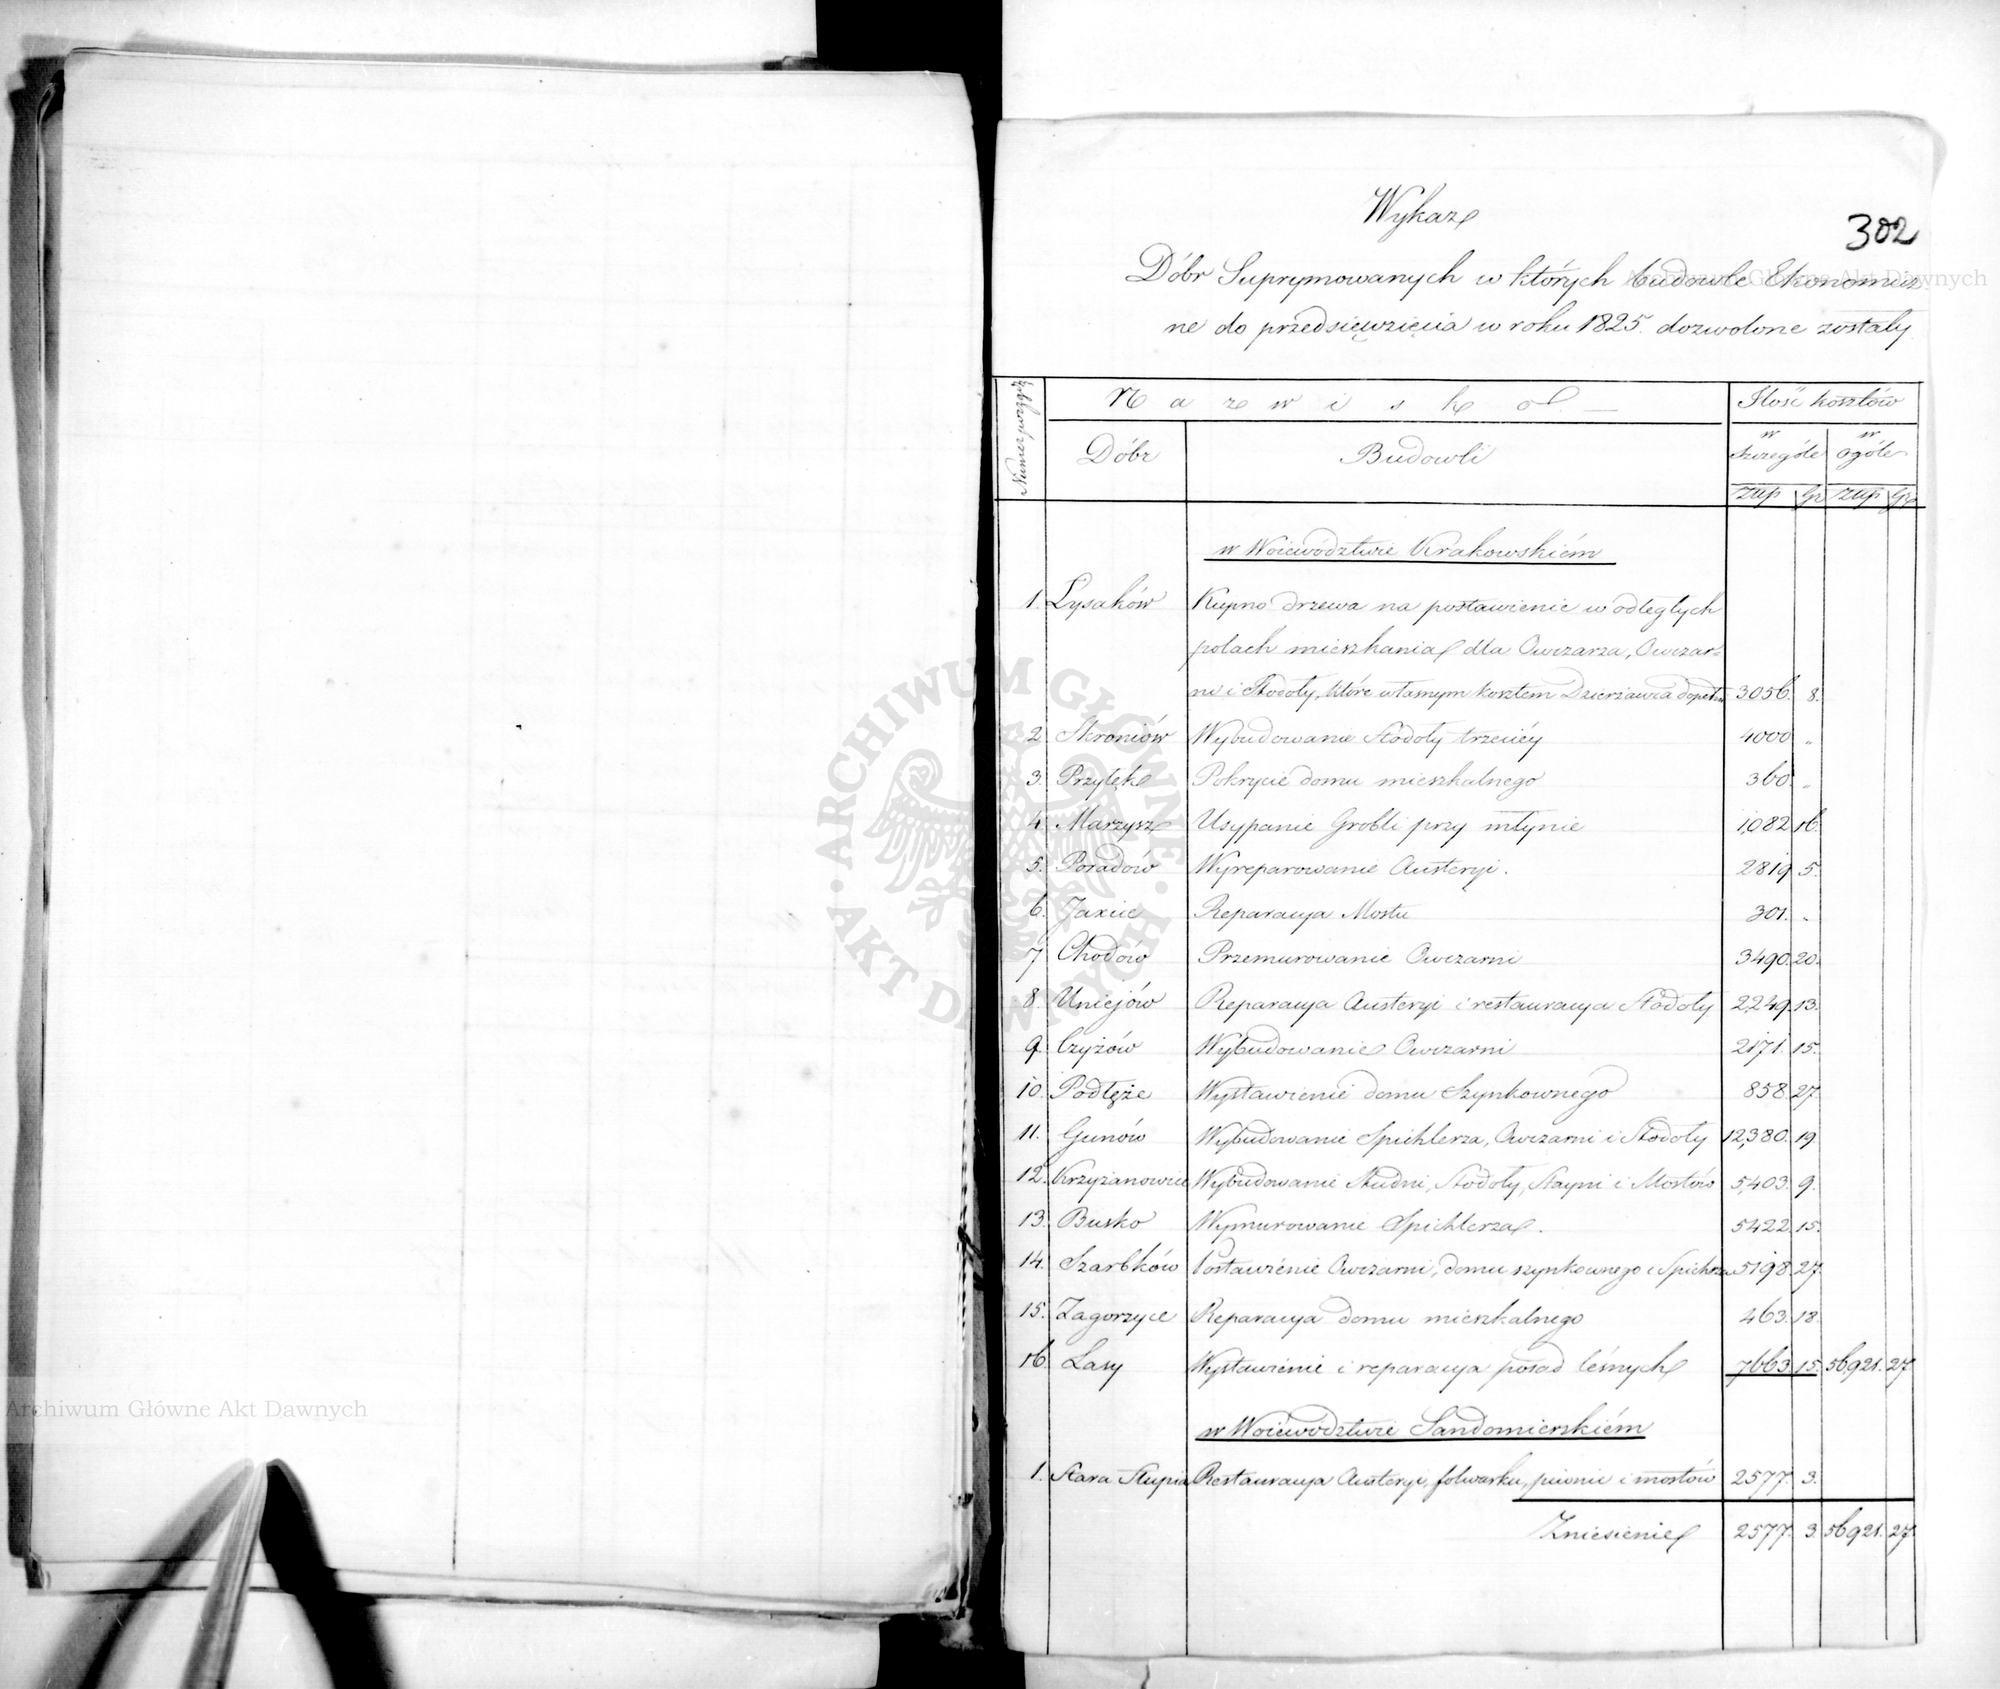 Wykaz
302
Dóbr Suprymowanych w których budowle Ekonomicz
ne do przedsięwzięcia w roku 1825. dozwolone zostały
Numer porządk
Nazwisko
Ilość kosztów
Dóbr
Budowli
w Szczególe
w ogóle
złtp gr złtp gr
w Woiewództwie Krakowskiém
1. Łysaków Kupno drzewa na postawienie w odległych
polach mieszkania dla Owczarza, Owczar=
ni i Stodoły, które własnym kosztem Dzierżawca dopełni 3056. 8.
2 Skroniów Wybudowanie Stodoły trzeciéy 4000 "
3. Przyłęk Pokrycie domu mieszkalnego 360. "
4. Marzysz Usypanie Grobli przy młynie 1,082 16.
5. Posadów Wyreparowanie Austeryi. 2819 5.
6. Jaxice Reparacya Mostu 301. "
7 Chodów Przemurowanie Owczarni 3490. 20.
8. Uniejów Reparacya Austeryi i restauracya Stodoły 2,249. 13.
9. Czyżów Wybudowanie Owczarni 2171. 15.
10. Podłęże Wystawienie domu Szynkownego 858. 27.
11. Gunów Wybudowanie Spichlerza, Owczarni i Stodoły 12,380. 19
12. Krzyżanowice Wybudowanie Studni, Stodoły, Stayni i Mostów 5,403. 9.
13. Busko Wymurowanie Spichlerza. 5422. 15.
14. Szarbków Postawienie Owczarni, domu szynkownego i Spichrza 5198. 27.
15. Zagorzyce Reparacya domu mieszkalnego 463. 18.
16. Lasy Wystawienie i reparacya posad leśnych 7663. 15. 56,921. 27
w Woiewództwie Sandomierskiém
1. Stara Słupia Restauracya Austeryi, folwarku, piwnic i mostów 2577. 3.
Zniesienie 2577. 3. 56,921. 27.
Archiwum Główne Akt Dawnych
Archiwum Główne Akt Dawnych
ARCHIWUM GŁÓWNE AKT DAWNYCH